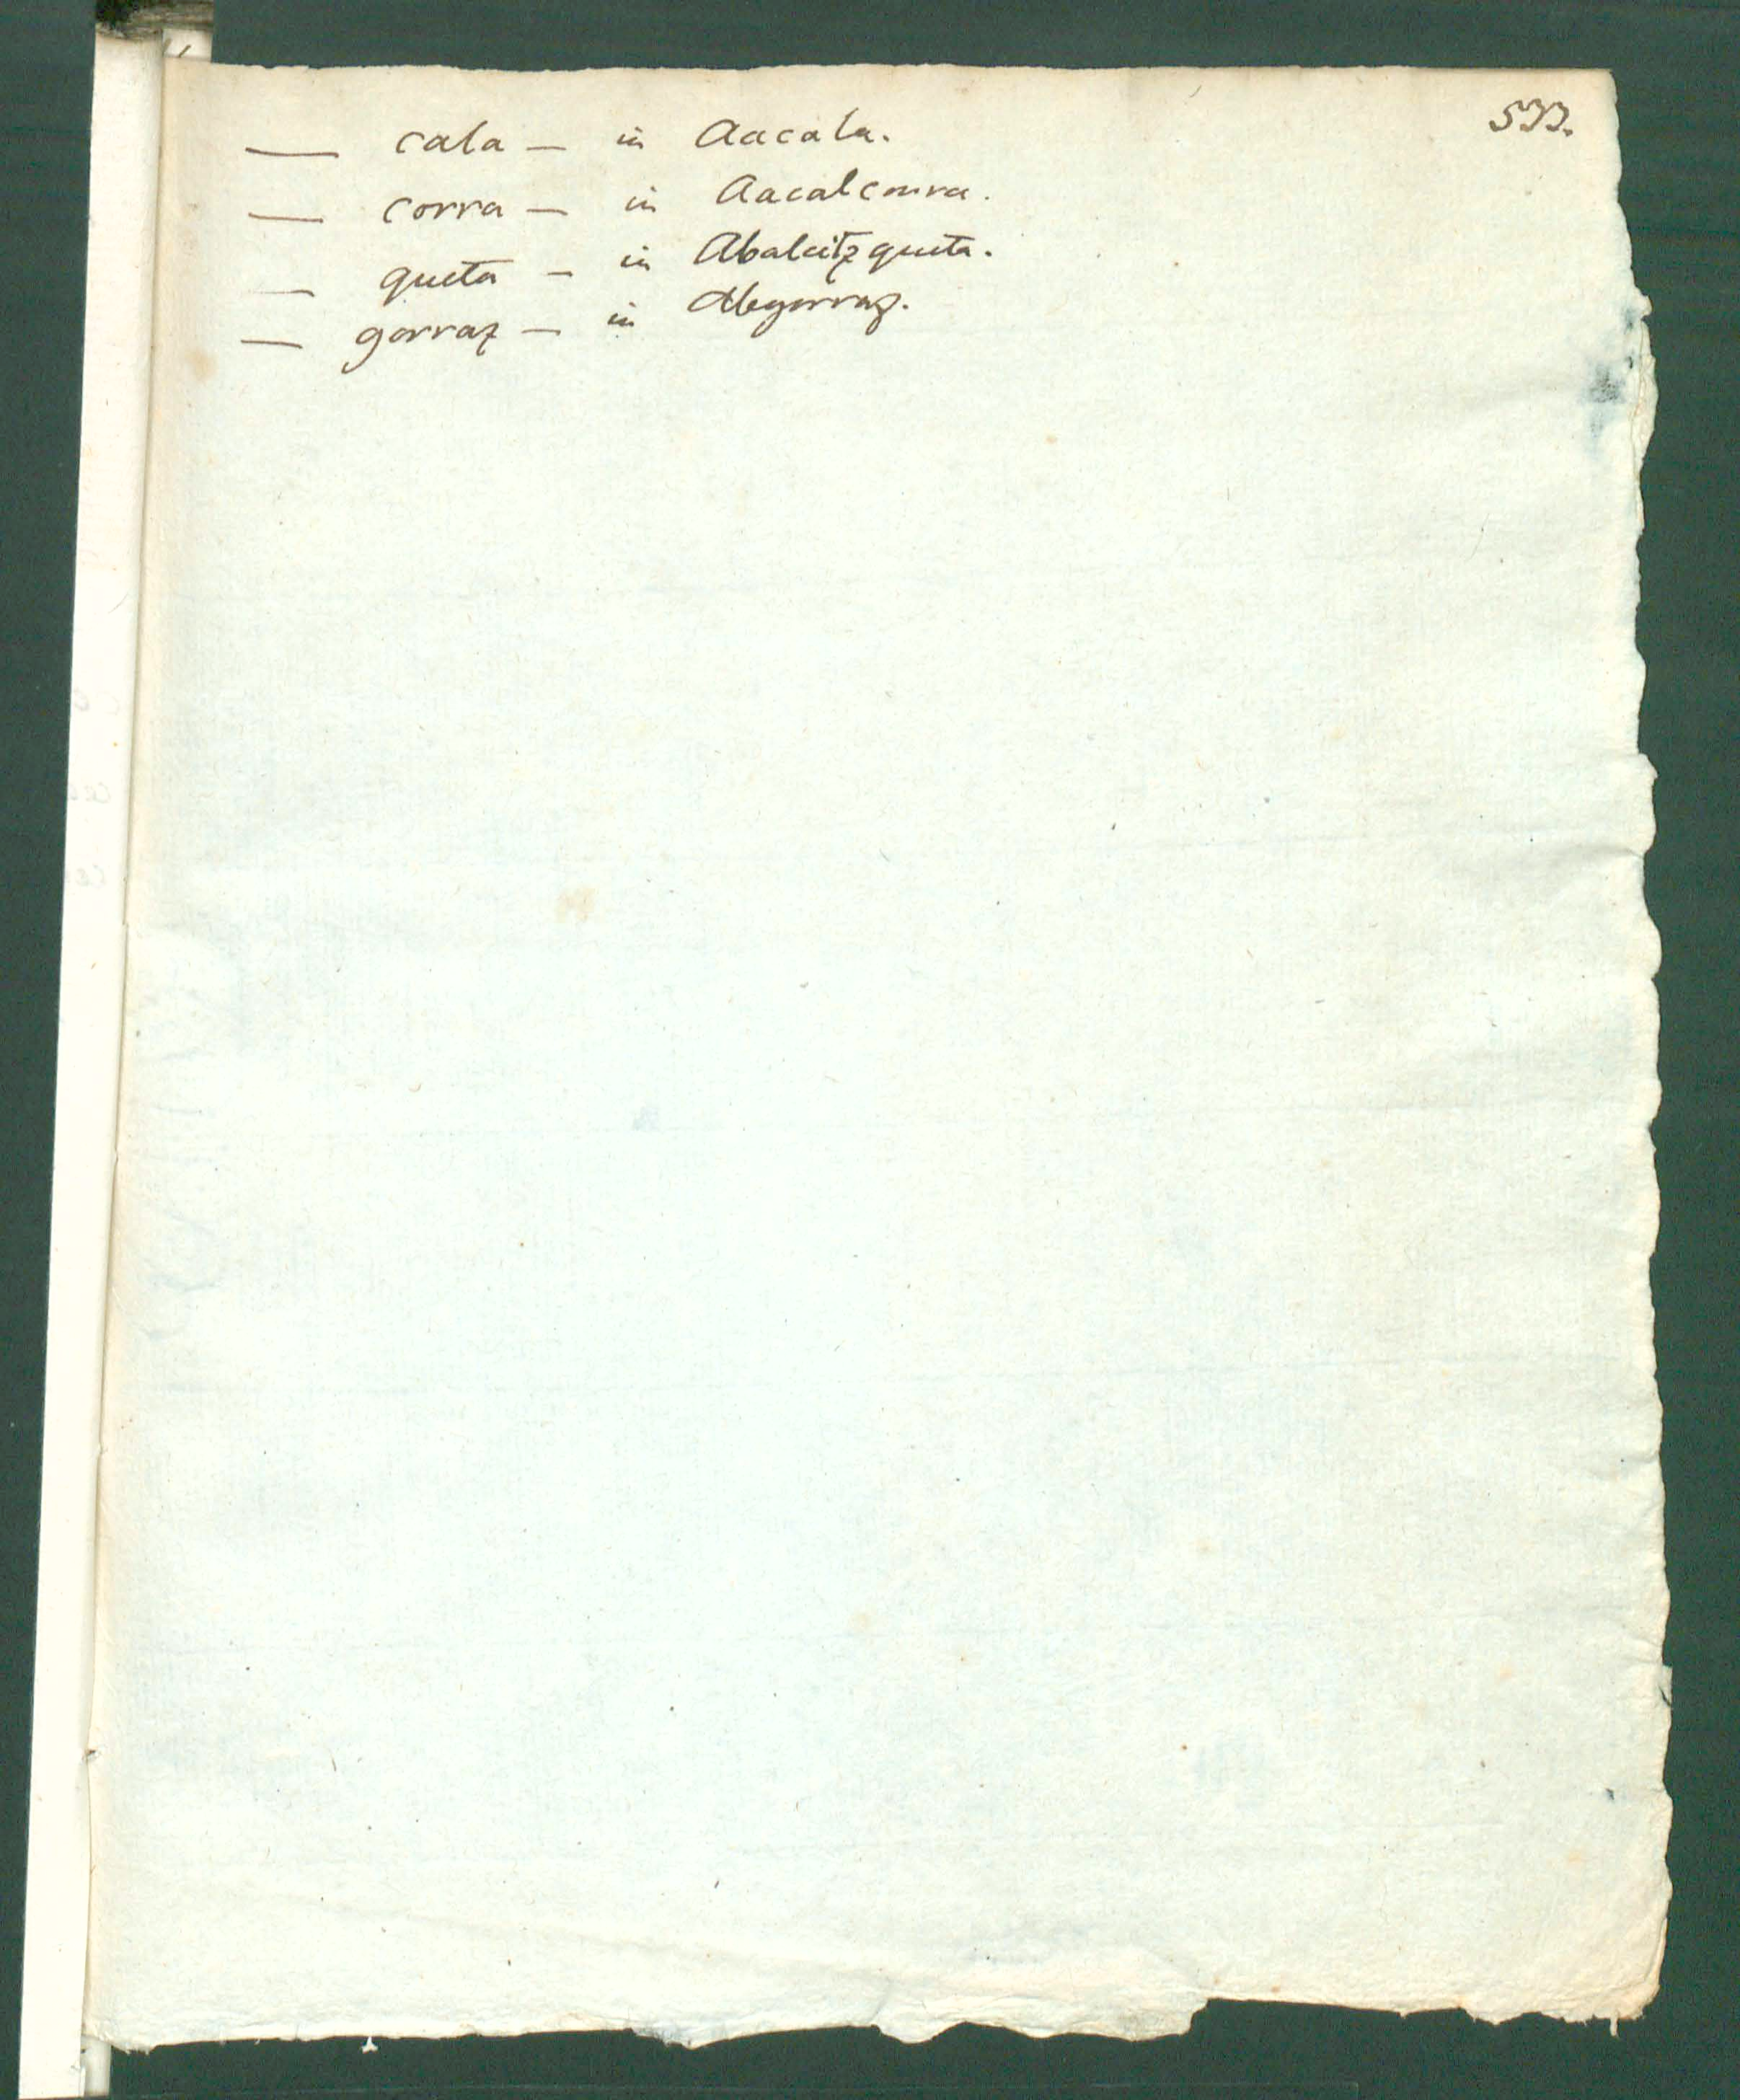 533.
— cala — in Aacala.
— corra — in Aacalcorra.
— queta — in Abaleitzqueta.
— gorraz — in Abegorraz.